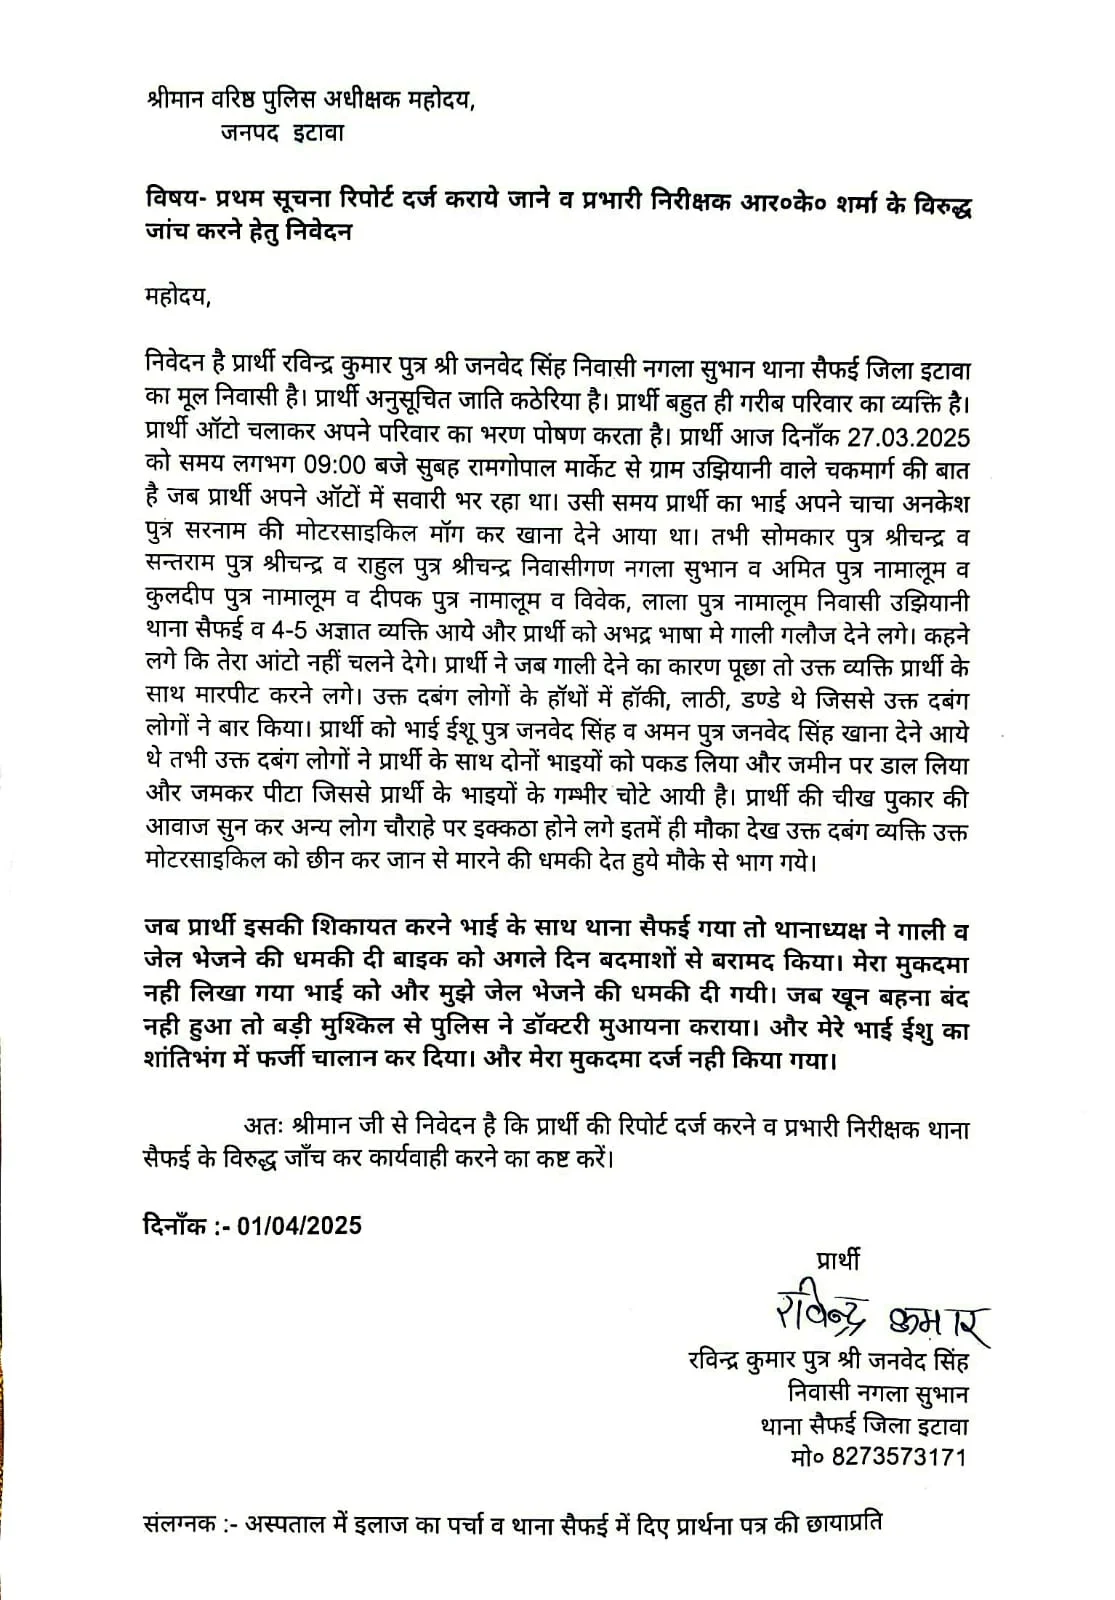 श्रीमान वरिष्ठ पुलिस अधीक्षक महोदय,
जनपद इटावा
विषय- प्रथम सूचना रिपोर्ट दर्ज कराये जाने व प्रभारी निरीक्षक आर०के० शर्मा के विरुद्ध
जांच करने हेतु निवेदन
महोदय,
निवेदन है प्रार्थी रविन्द्र कुमार पुत्र श्री जनवेद सिंह निवासी नगला सुभान थाना सैफई जिला इटावा
का मूल निवासी है। प्रार्थी अनुसूचित जाति कठेरिया है। प्रार्थी बहुत ही गरीब परिवार का व्यक्ति है।
प्रार्थी ऑटो चलाकर अपने परिवार का भरण पोषण करता है। प्रार्थी आज दिनाँक 27.03.2025
को समय लगभग 09:00 बजे सुबह रामगोपाल मार्केट से ग्राम उझियानी वाले चकमार्ग की बात
है जब प्रार्थी अपने ऑटों में सवारी भर रहा था। उसी समय प्रार्थी का भाई अपने चाचा अनकेश
पुत्र सरनाम की मोटरसाइकिल मॉग कर खाना देने आया था। तभी सोमकार पुत्र श्रीचन्द्र व
सन्तराम पुत्र श्रीचन्द्र व राहुल पुत्र श्रीचन्द्र निवासीगण नगला सुभान व अमित पुत्र नामालूम व
कुलदीप पुत्र नामालूम व दीपक पुत्र नामालूम व विवेक, लाला पुत्र नामालूम निवासी उझियानी
थाना सैफई व 4-5 अज्ञात व्यक्ति आये और प्रार्थी को अभद्र भाषा मे गाली गलौज देने लगे। कहने
लगे कि तेरा आंटो नहीं चलने देगे। प्रार्थी ने जब गाली देने का कारण पूछा तो उक्त व्यक्ति प्रार्थी के
साथ मारपीट करने लगे। उक्त दबंग लोगों के हॉथों में हॉकी, लाठी, डण्डे थे जिससे उक्त दबंग
लोगों ने बार किया। प्रार्थी को भाई ईशू पुत्र जनवेद सिंह व अमन पुत्र जनवेद सिंह खाना देने आये
थे तभी उक्त दबंग लोगों ने प्रार्थी के साथ दोनों भाइयों को पकड लिया और जमीन पर डाल लिया
और जमकर पीटा जिससे प्रार्थी के भाइयों के गम्भीर चोटे आयी है। प्रार्थी की चीख पुकार की
आवाज सुन कर अन्य लोग चौराहे पर इक्कठा होने लगे इतमें ही मौका देख उक्त दबंग व्यक्ति उक्त
मोटरसाइकिल को छीन कर जान से मारने की धमकी देत हुये मौके से भाग गये।
जब प्रार्थी इसकी शिकायत करने भाई के साथ थाना सैफई गया तो थानाध्यक्ष ने गाली व
जेल भेजने की धमकी दी बाइक को अगले दिन बदमाशों से बरामद किया। मेरा मुकदमा
नही लिखा गया भाई को और मुझे जेल भेजने की धमकी दी गयी। जब खून बहना बंद
नही हुआ तो बड़ी मुश्किल से पुलिस ने डॉक्टरी मुआयना कराया। और मेरे भाई ईशु का
शांतिभंग में फर्जी चालान कर दिया। और मेरा मुकदमा दर्ज नही किया गया।
अतः श्रीमान जी से निवेदन है कि प्रार्थी की रिपोर्ट दर्ज करने व प्रभारी निरीक्षक थाना
सैफई के विरुद्ध जाँच कर कार्यवाही करने का कष्ट करें।
दिनाँक :- 01/04/2025
प्रार्थी
रविन्द्र कुमार
रविन्द्र कुमार पुत्र श्री जनवेद सिंह
निवासी नगला सुभान
थाना सैफई जिला इटावा
मो० 8273573171
संलग्नक :- अस्पताल में इलाज का पर्चा व थाना सैफई में दिए प्रार्थना पत्र की छायाप्रति